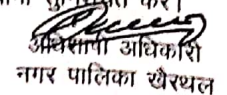 अधिशाषी अधिकारी
नगर पालिका खैरथल